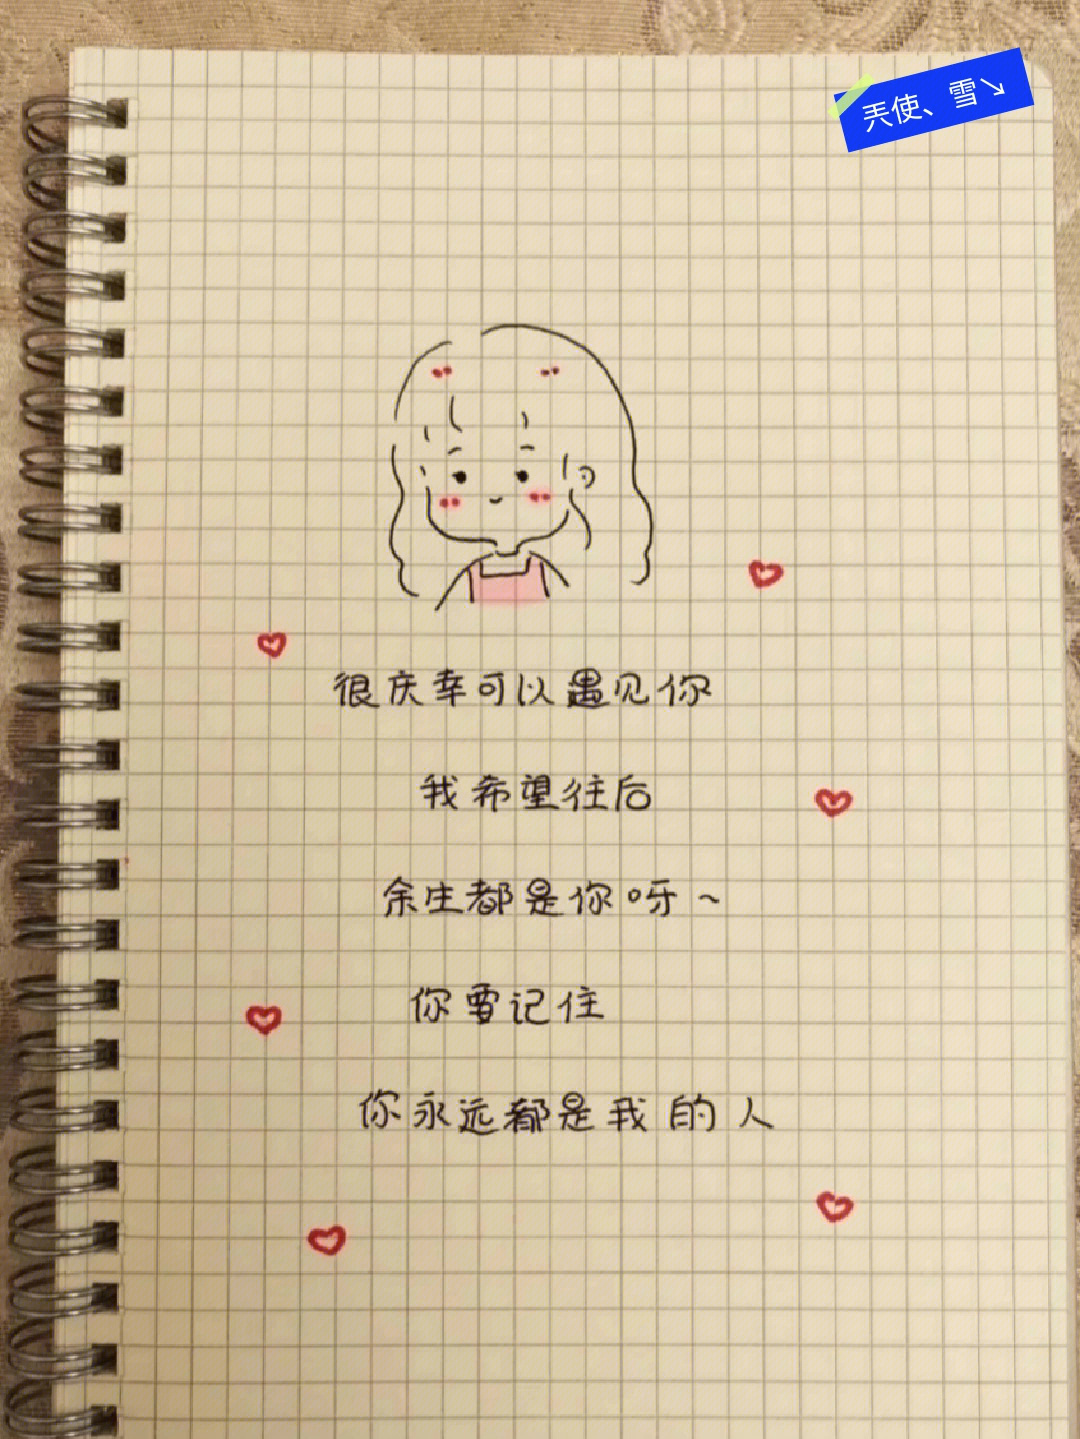 兲使、雪↘
很庆幸可以遇见你
我希望往后
余生都是你呀~
你要记住
你永远都是我的人